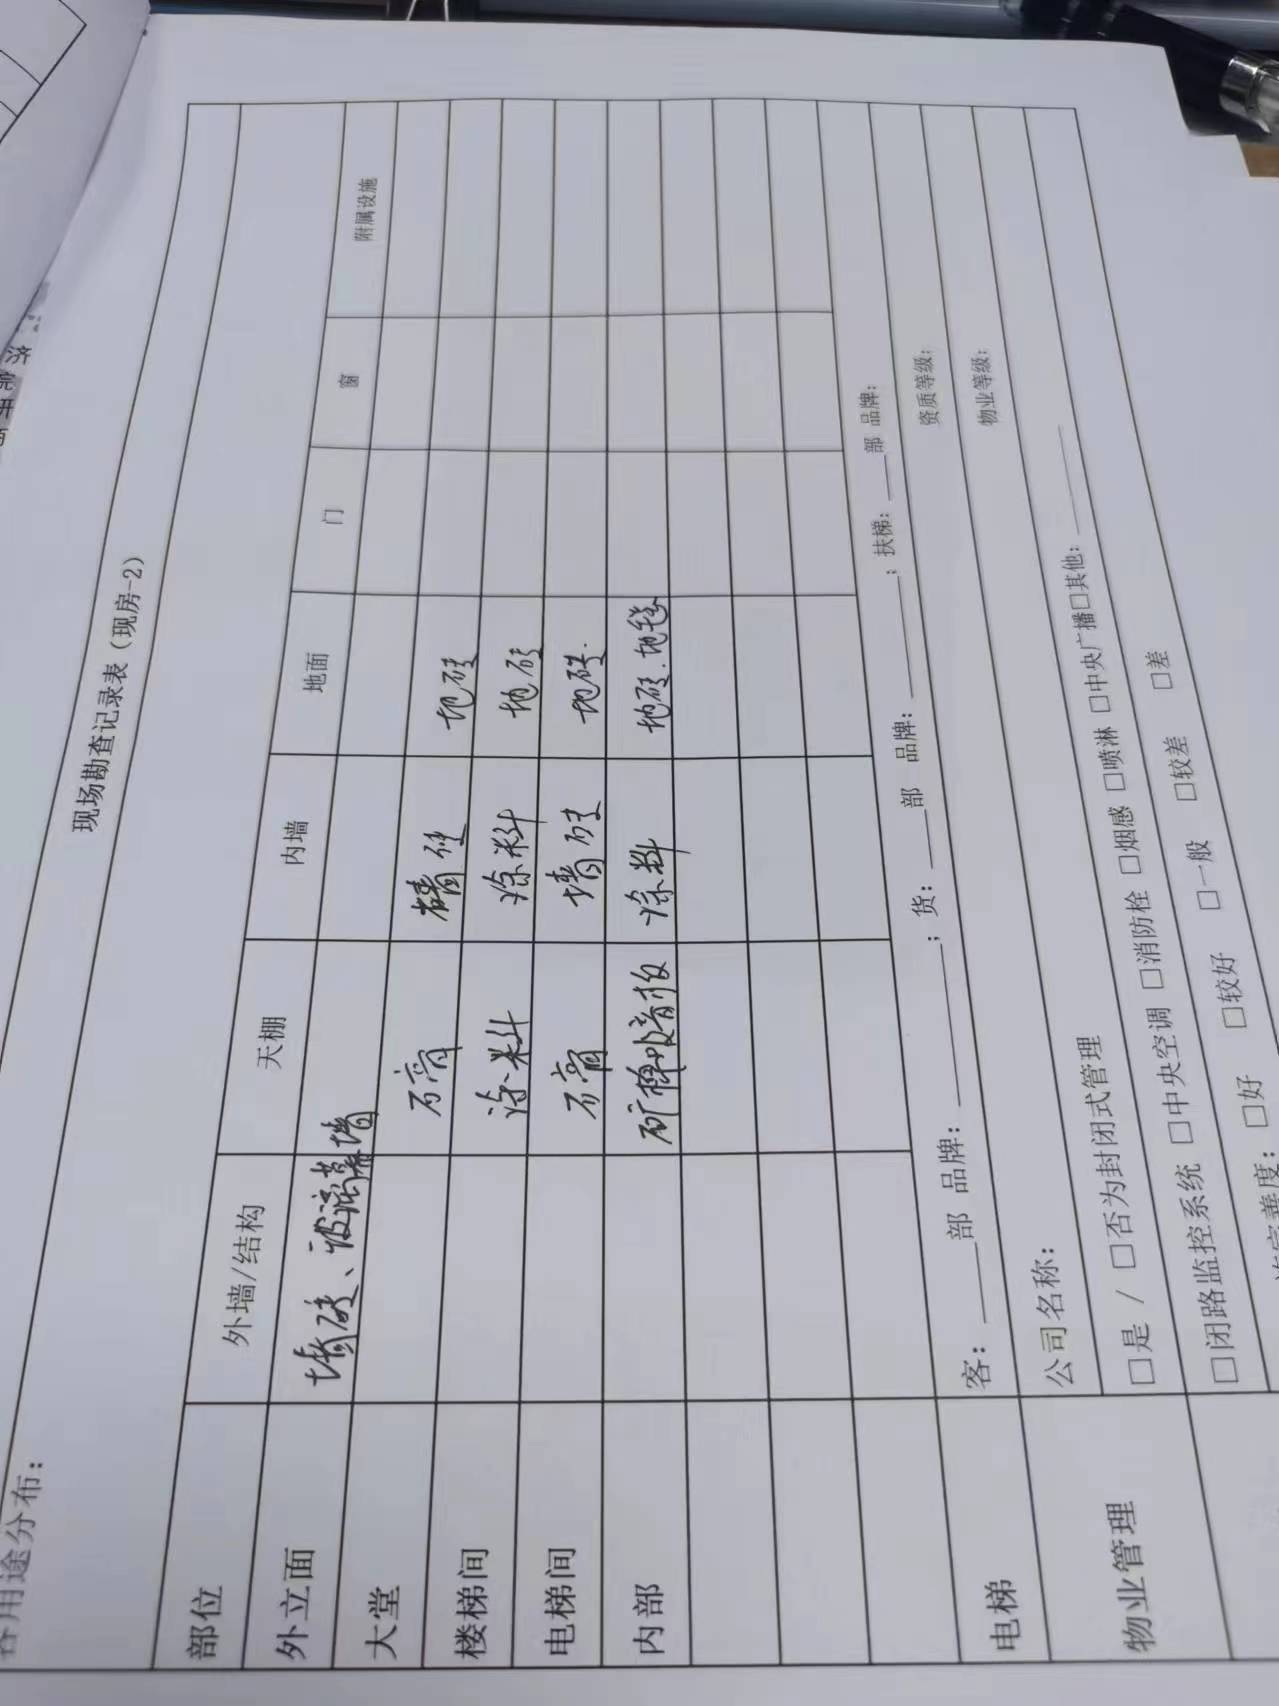 各用途分布：
现场勘查记录表（现房-2）
部位 外墙/结构 天棚 内墙 地面 门 窗 附属设施
外立面 墙砖、玻璃幕墙
大堂 石膏 墙砖 地砖
楼梯间 涂料 涂料 地砖
电梯间 石膏 墙砖 地砖.
内部 矿棉吸音板 涂料 地砖.地毯
电梯 客：___部 品牌：______；货：___部 品牌：______；扶梯：___部 品牌：
物业管理 公司名称： 资质等级：
□是 / □否为封闭式管理 物业等级：
□闭路监控系统 □中央空调 □消防栓 □烟感 □喷淋 □中央广播□其他：______
善度： □好 □较好 □一般 □较差 □差